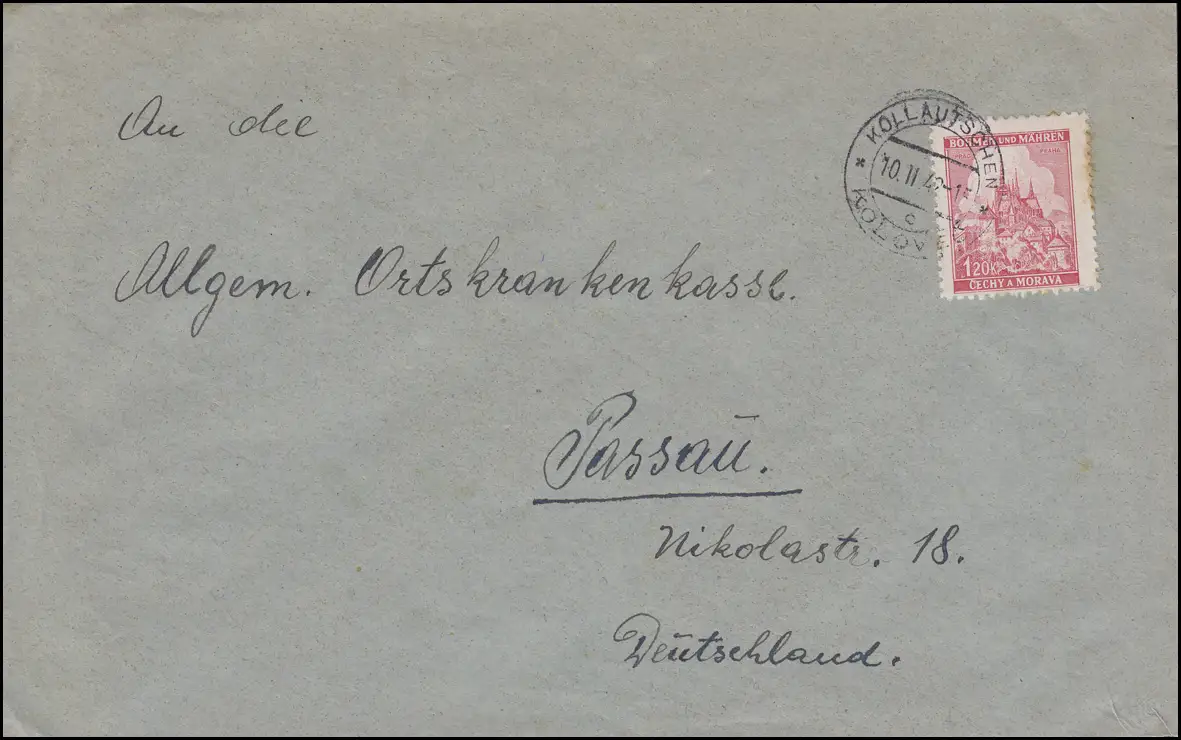 An die
Allgem. Ortskrankenkasse.
Passau.
Nikolastr. 18.
Deutschland.
KOLLAUTSCHEN
10. II 4
c
BÖHMEN UND MÄHREN
PRAG PRAHA
1.20K
ČECHY A MORAVA